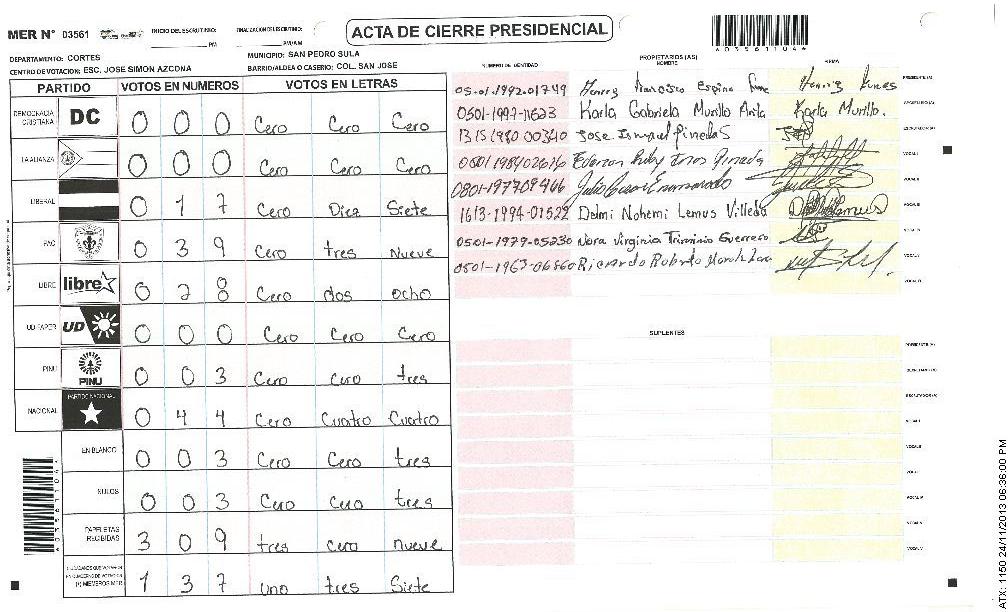 MER N° 03561
INICIO DEL ESCRUTINIO: PM
FINALIZACION DE ESCRUTINIO: PM/AM
ACTA DE CIERRE PRESIDENCIAL
A035611044
DEPARTAMENTO: CORTES
MUNICIPIO: SAN PEDRO SULA
CENTRO DE VOTACION: ESC. JOSE SIMON AZCONA
BARRIO/ALDEA O CASERIO: COL. SAN JOSE
PARTIDO VOTOS EN NUMEROS VOTOS EN LETRAS
DEMOCRACIA CRISTIANA DC 0 0 0 Cero Cero Cero
LA ALIANZA 0 0 0 Cero Cero Cero
LIBERAL 0 1 7 Cero Diez Siete
PAC 0 3 9 Cero tres Nueve
LIBRE libre 0 2 8 Cero dos ocho
UD FAPER UD 0 0 0 Cero Cero Cero
PINU PINU 0 0 3 Cero Cero tres
NACIONAL PARTIDO NACIONAL 0 4 4 Cero Cuatro Cuatro
EN BLANCO 0 0 3 Cero Cero tres
NULOS 0 0 3 Cero Cero tres
PAPELETAS RECIBIDAS 3 0 9 tres cero nueve
CIUDADANOS QUE VOTARON EN CUADERNO DE VOTACION (+) MIEMBROS MER 1 3 7 uno tres Siete
NUMERO DE IDENTIDAD PROPIETARIOS (AS) NOMBRE FIRMA
05-01-1992-01749 Henry francisco Espino Henry PRESIDENTE (A)
0501-1997-11623 Karla Gabriela Murillo Karla Murillo. SECRETARIO (A)
1315 1980 00340 Jose Ismael Pinedas ESCRUTADOR (A)
VOCAL I
Julio Cesar Enamorado VOCAL II
1613-1994-01522 Delmi Nohemi Lemus Villeda VOCAL III
0501-1979-05230 Nora Virginia Triminio Guerrero VOCAL IV
0501-1963-06860 Ricardo Roberto VOCAL V
SUPLENTES
PRESIDENTE (A)
SECRETARIO (A)
ESCRUTADOR (A)
VOCAL I
VOCAL II
VOCAL III
VOCAL IV
VOCAL V
ATX: 1150 24/11/2013 06:36:00 PM